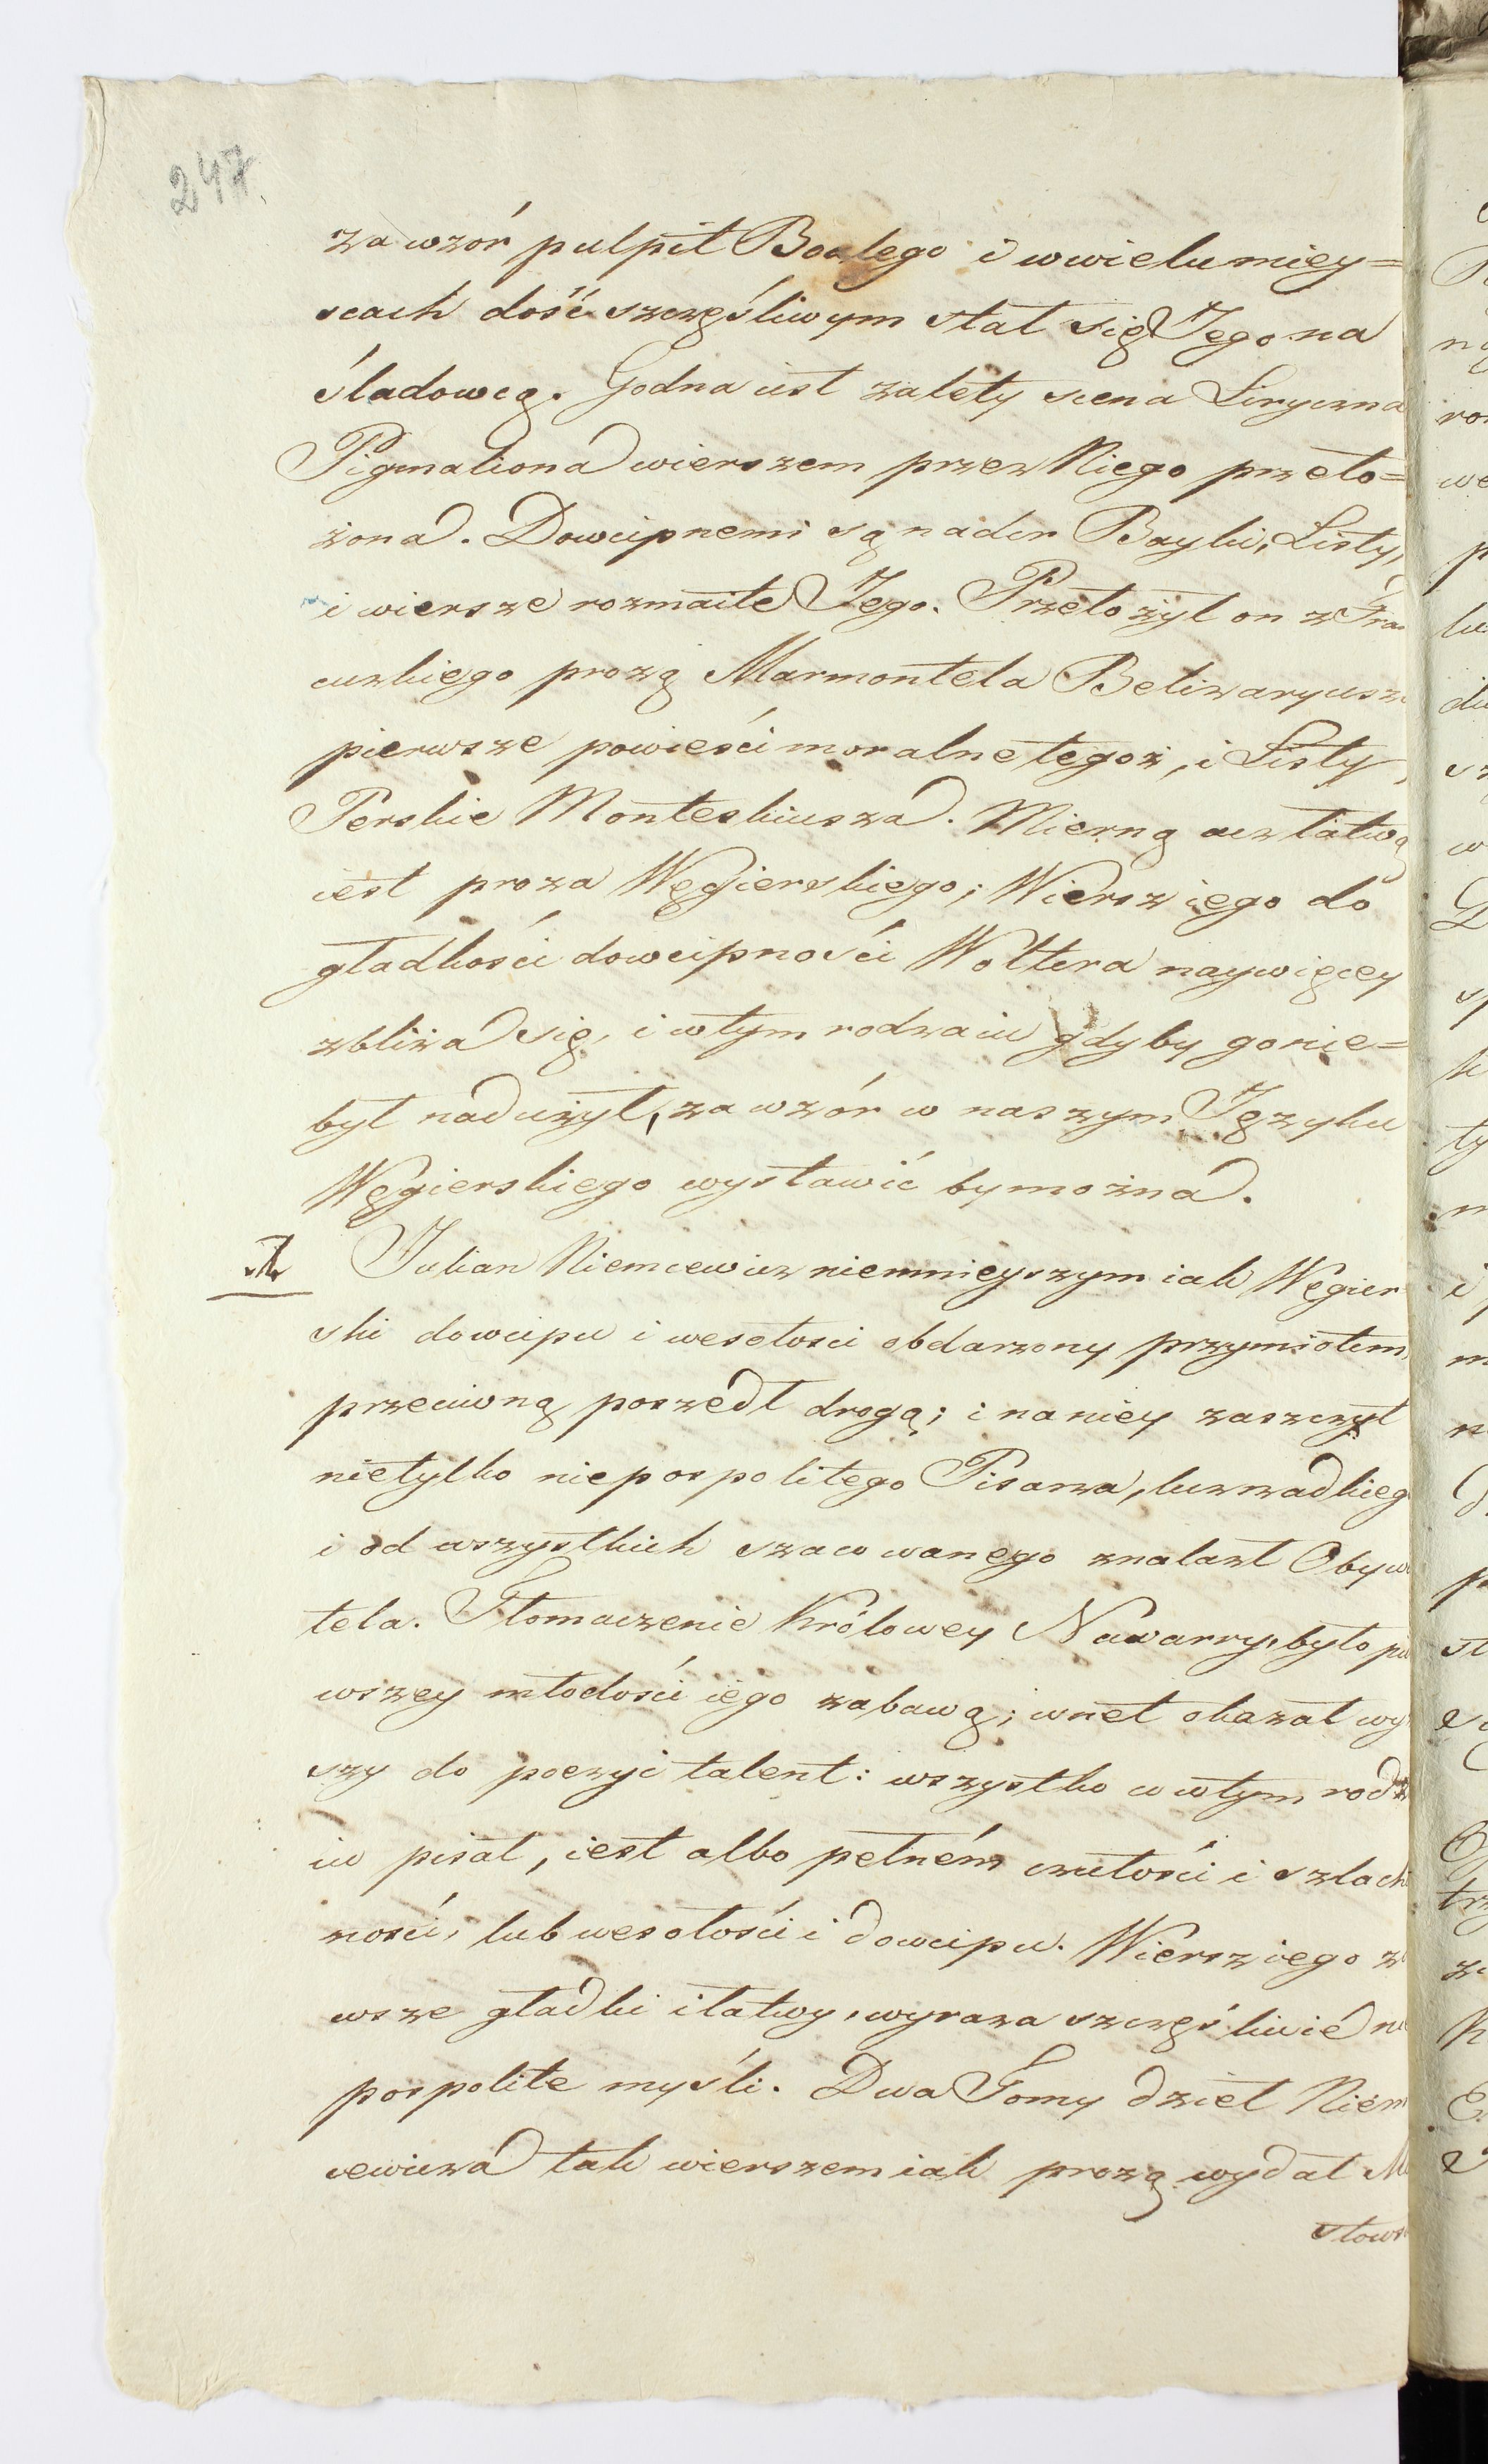 247.
za wzór pulpit Boalego i w wielu miey=
scach dość szczęśliwym stał się Jego na
śladowcą. Godna iest zalety scena Liryczna
Pigmaliona wierszem przez Niego przeło=
żona. Dowcipnemi są nader Bayki, Listy,
i wiersze rozmaite Jego. Przełożył on z Fran
cuzkiego prozą Marmontela Belizaryusza
pierwsze powieści moralne tegoż, i Listy
Perskie Monteskiusza. Mierną acz łatwą
iest proza Węgierskiego; Wiersz iego do
gładkości dowcipności Woltera naywięcey
zbliża się, i w tym rodzaiu gdyby go nie=
był nadużył, za wzór w naszym Języku
Węgierskiego wystawić by można.
Julian Niemcewicz niemnieyszym iak Węgier
ski dowcipu i wesołości obdarzony przymiotem,
przeciwną poszedł drogą; i na niey zaszczyt
nietylko niepospolitego Pisarza, lecz rzadkieg
i od wszystkich szacowanego znalazł Obywa
tela. Tłomaczenie Królowey Nawarry, było pie
wszey młodości iego zabawą; wnet okazał wy
szy do poezyi talent: wszystko co w tym rodza
iu pisał, iest albo pełném czułości i szlach
ności, lub wesołości i dowcipu. Wiersz iego za
wsze gładki i łatwy, wyraża szczęśliwie nie
pospolite myśli. Dwa Tomy dzieł Niem
cewicza tak wierszem iak prozą wydał M
stows